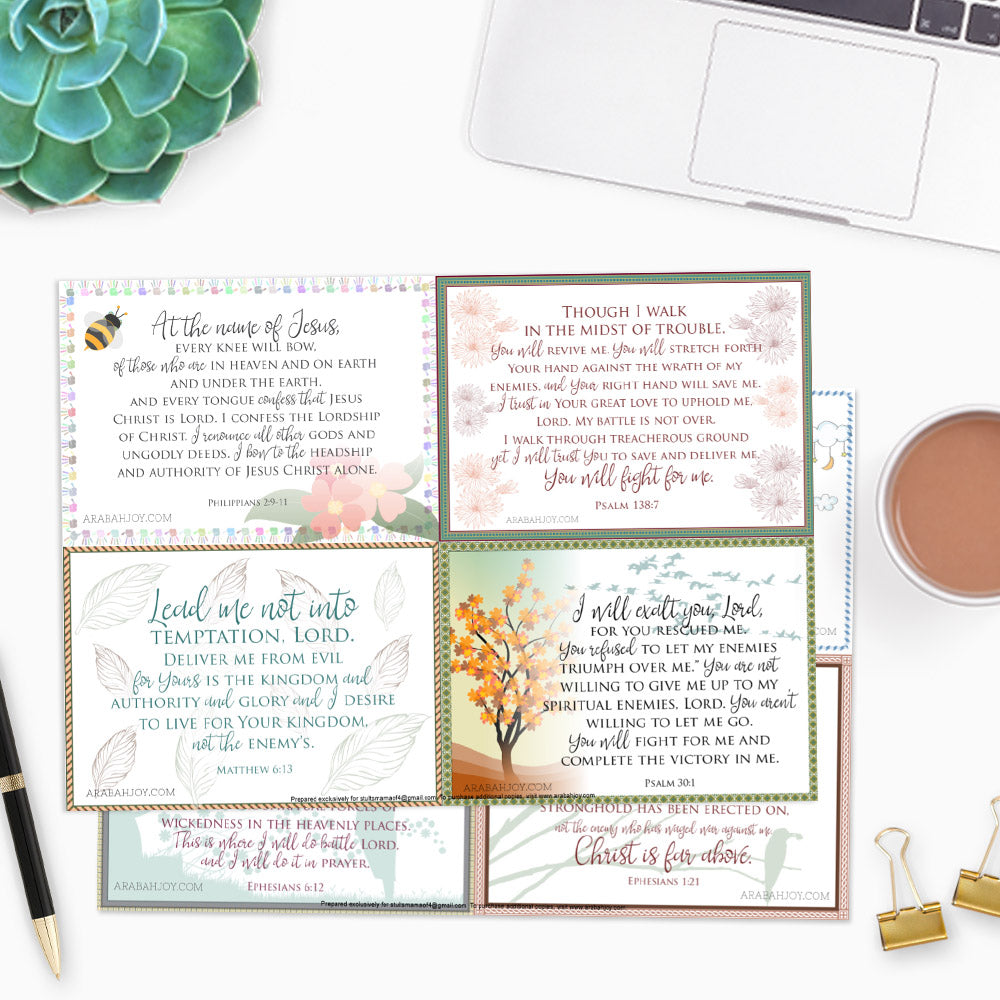 At the name of Jesus,
EVERY KNEE WILL BOW,
of those who are IN HEAVEN AND ON EARTH
AND UNDER THE EARTH,
AND EVERY TONGUE confess that JESUS
CHRIST IS LORD. I CONFESS THE LORDSHIP
OF CHRIST. I renounce all other GODS AND
UNGODLY DEEDS. I bow to the HEADSHIP
AND AUTHORITY OF JESUS CHRIST ALONE.
PHILIPPIANS 2:9-11
ARABAHJOY.COM
THOUGH I WALK
IN THE MIDST OF TROUBLE,
You will REVIVE ME. You will STRETCH FORTH
YOUR HAND AGAINST THE WRATH OF MY
ENEMIES, and Your RIGHT HAND WILL SAVE ME.
I trust in YOUR GREAT LOVE TO UPHOLD ME,
LORD. MY BATTLE IS NOT OVER.
I WALK THROUGH TREACHEROUS GROUND
yet I will trust YOU TO SAVE AND DELIVER ME.
You will fight for me.
PSALM 138:7
ARABAHJOY.COM
Lead me not into
TEMPTATION, LORD.
DELIVER ME FROM EVIL
for Yours IS THE KINGDOM and
AUTHORITY and GLORY and I DESIRE
TO LIVE FOR YOUR KINGDOM,
not the ENEMY'S.
MATTHEW 6:13
ARABAHJOY.COM
I will exalt you, Lord,
FOR YOU RESCUED ME.
You refused TO LET MY ENEMIES
TRIUMPH OVER ME." You are not
WILLING TO GIVE ME UP TO MY
SPIRITUAL ENEMIES, LORD. You aren't
WILLING TO LET ME GO.
You will FIGHT FOR ME AND
COMPLETE THE VICTORY IN ME.
PSALM 30:1
ARABAHJOY.COM
Prepared exclusively for stultsmamaof4@gmail.com To purchase additional copies, visit www.arabahjoy.com
OM
WICKEDNESS IN THE HEAVENLY PLACES.
This is where I will do battle LORD,
and I will do it in PRAYER.
EPHESIANS 6:12
ARABAHJOY.COM
STRONGHOLD HAS BEEN ERECTED ON,
not the enemy who has waged war against me.
Christ is far above.
EPHESIANS 1:21
ARABAHJOY.COM
Prepared exclusively for stultsmamaof4@gmail.com To purchase additional copies, visit www.arabahjoy.com